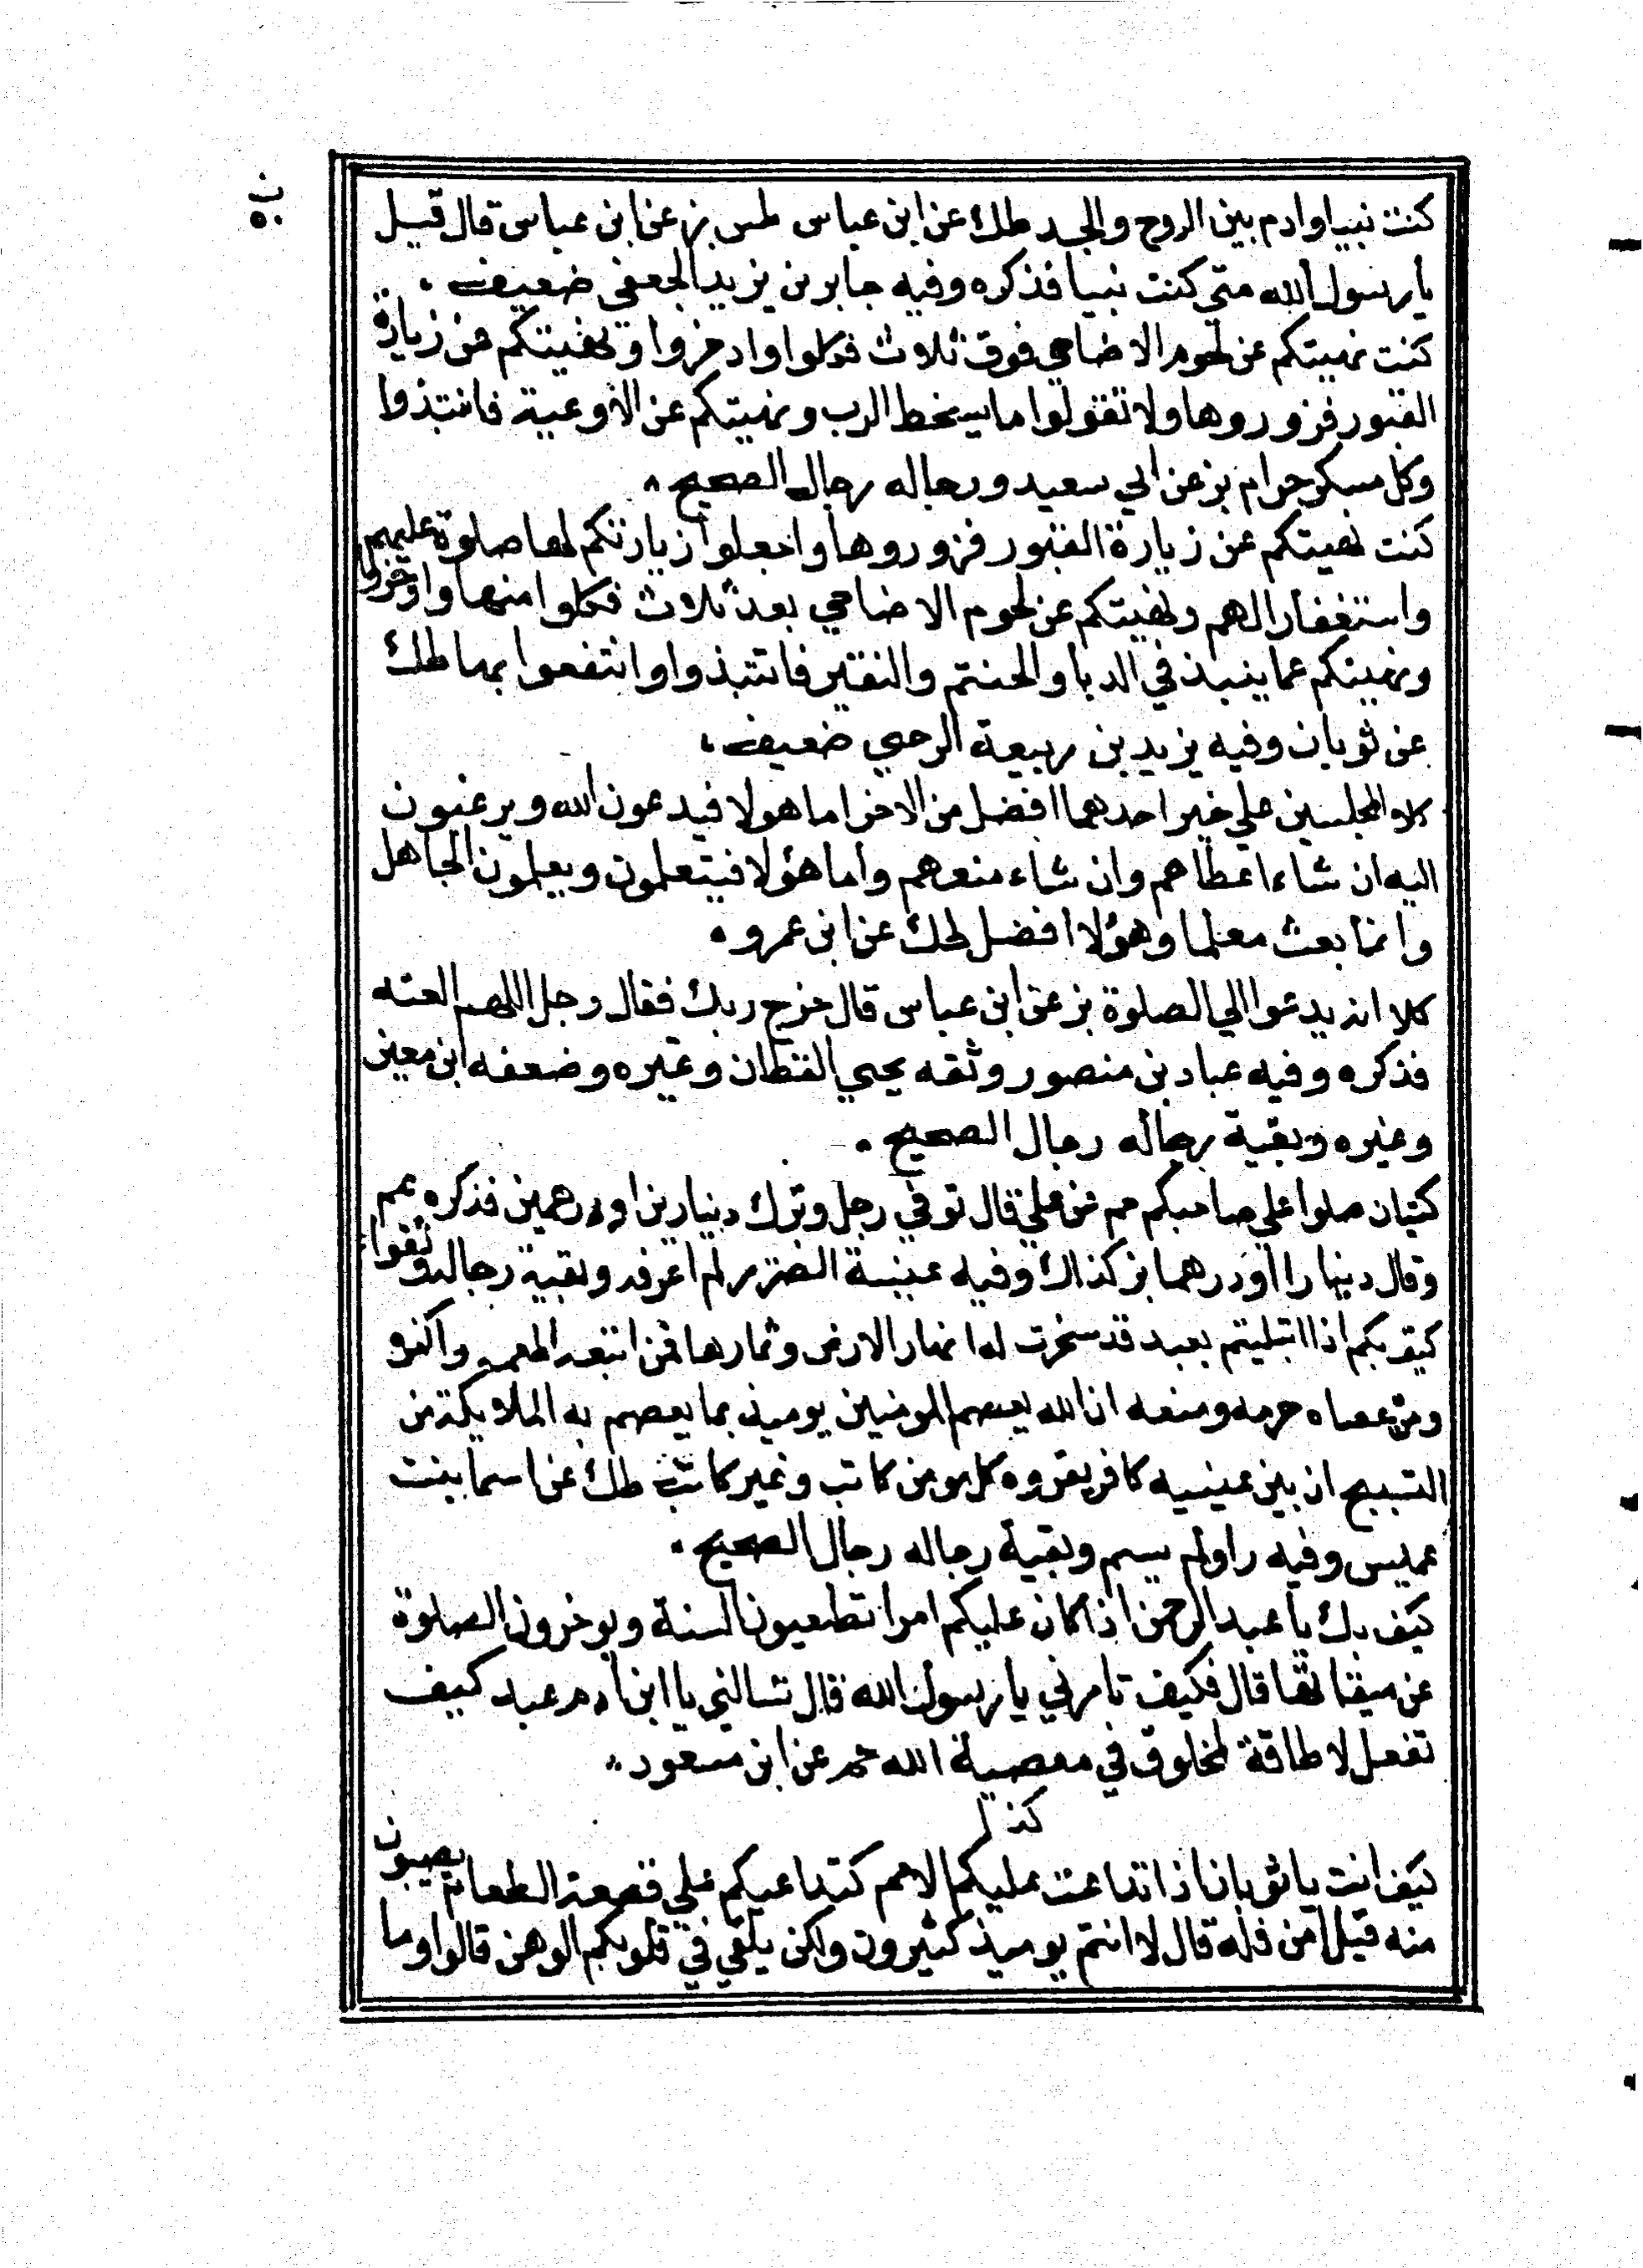 كنت نبيا وادم بين الروح والجسد طك عن ابن عباس طس بز عن ابن عباس قال قيل
يا رسول الله متي كنت نبيا فذكره وفيه جابر بن يزيد الجعفي ضعيف
كنت نهيتكم عن لحوم الاضاحي فوق ثلاث فكلوا وادخروا ونهيتكم عن زيارة
القبور فزوروها ولا تقولوا ما يسخط الرب ونهيتكم عن الاوعية فانتبذوا
وكل مسكر حرام بز عن ابي سعيد ورجاله رجال الصحيح
كنت نهيتكم عن زيارة القبور فزوروها واجعلوا زيارتكم لها صلوة عليهم
واستغفارا لهم ونهيتكم عن لحوم الاضاحي بعد ثلاث فكلوا منها وادخروا
ونهيتكم عما ينبذ في الدبا والحنتم والنقير فانتبذوا وانتفعوا بها طك
عن ثوبان وفيه يزيد بن ربيعة الرحبي ضعيف
كلا المجلسين علي خير احدهما افضل من الاخر اما هولا فيدعون الله ويرغبون
اليه ان شاء اعطاهم وان شاء منعهم واما هؤلا فيتعلمون ويعلمون الجاهل
وانما بعثت معلما وهؤلا افضل عن ابن عمرو
كلا انه يدعوا الي الصلوة بز عن ابن عباس قال خرج ديك فقال رجل اللهم العنه
فذكره وفيه عباد بن منصور وثقه يحيي القطان وغيره وضعفه ابن معين
وغيره وبقية رجاله رجال الصحيح
كيتان صلوا علي صاحبكم حم عن علي قال توفي رجل وترك دينارين او درهمين فذكره عم
وقال دينارا او درهما بز كذلك وفيه عيينة الضرير لم اعرفه وبقية رجاله وثقوا
كيف بكم اذا ابتليتم بعبد قد سخرت له انهار الارض وثمارها فمن اتبعه اطعمه واكفره
ومن عصاه حرمه ومنعه ان الله يعصم المومنين يوميذ بما يعصم به الملايكة من
التسبيح ان بين عينيه كافر يقروه كل مومن كاتب وغير كاتب طك عن اسما بنت
عميس وفيه راو لم يسم وبقية رجاله رجال الصحيح
كيف بك يا عبد الرحمن اذا كان عليكم امرا يطفيون السنة ويوخرون الصلوة
عن ميقاتها قال فكيف تامرني يا رسول الله قال تسالني يا ابن ام عبد كيف
تفعل لا طاقة لمخلوق في معصية الله حم عن ابن مسعود
كذا
كيف انت يا ثوبان اذا تداعت عليكم الامم كتداعيكم علي قصعة الطعام يصيبون
منه قيل امن قلة قال لا انتم يوميذ كثيرون ولكن يلقي في قلوبكم الوهن قالوا وما